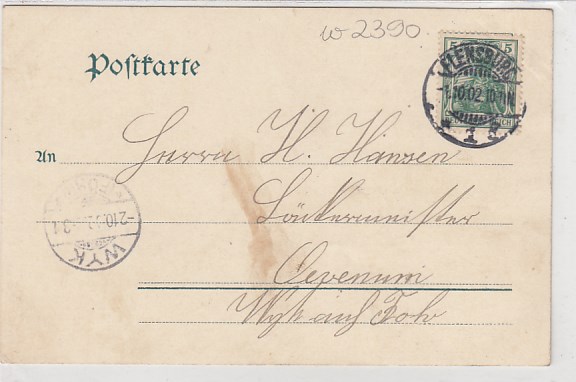 w 2390
Postkarte
5 5
FLENSBURG
-1.10.02.10-11N.
* 1 *
An Herrn H. Hansen
Bäckermeister
Oevenum
WYK
Wyk auf Föhr